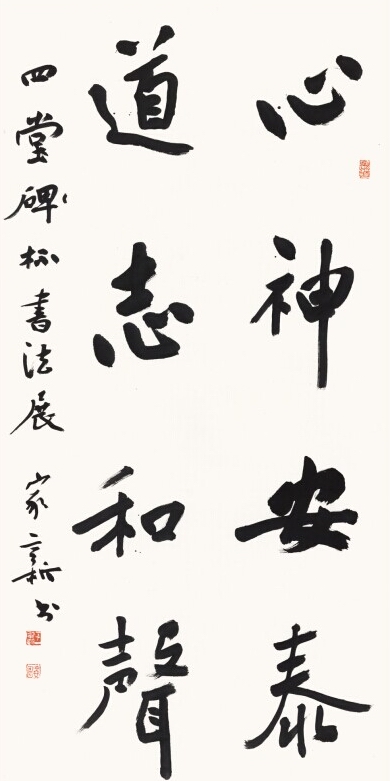 心神安泰
道志和聲
四堂碑松書法展 家新書